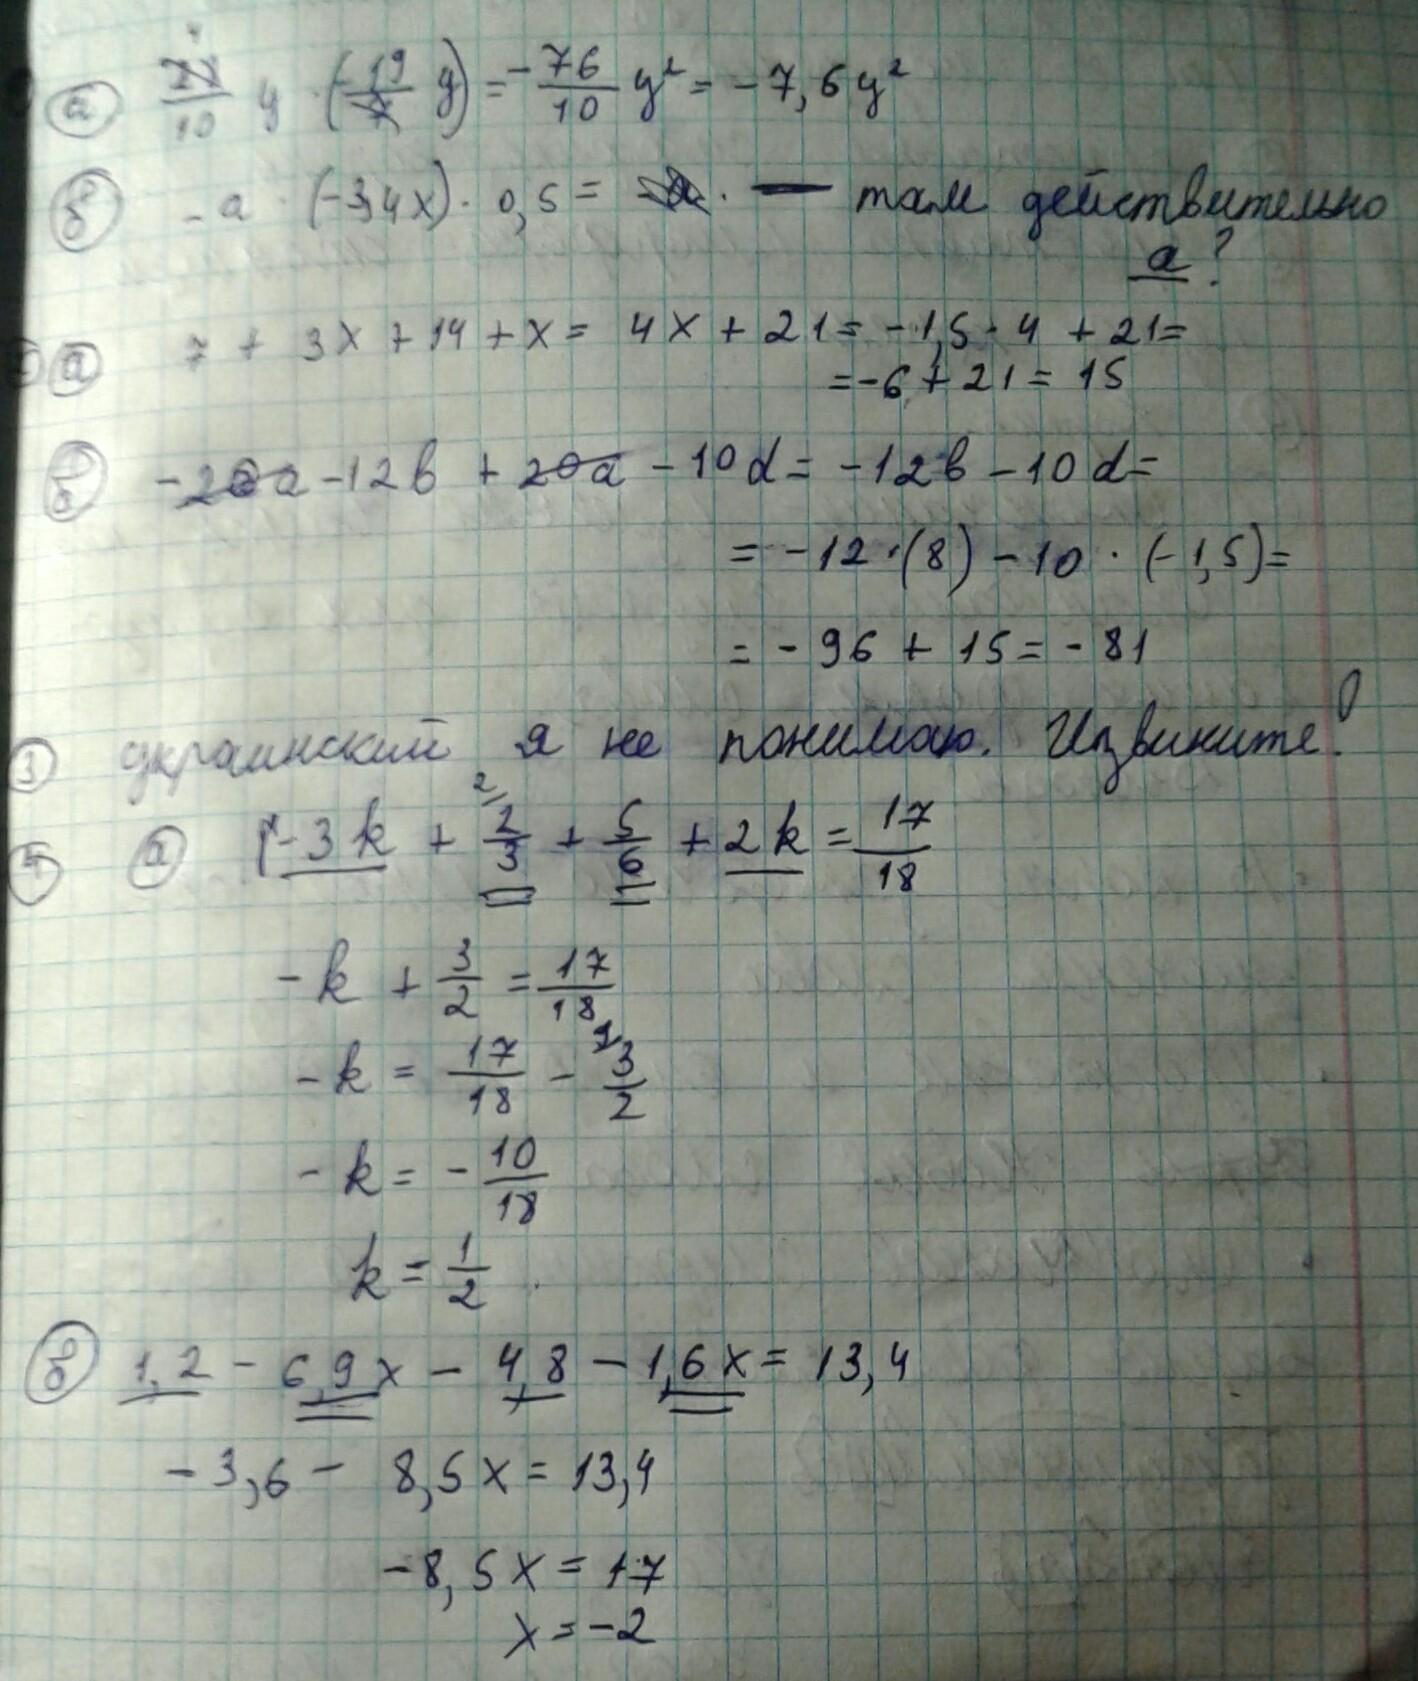 а) 28/10 y · (-19/7 y) = -76/10 y² = -7,6y²
б) -a · (-3,4x) · 0,5 = — там действительно
a?
а) 7 + 3x + 14 + x = 4x + 21 = -1,5 · 4 + 21 =
= -6 + 21 = 15
б) -20a - 12b + 20a - 10d = -12b - 10d =
= -12 · (8) - 10 · (-1,5) =
= -96 + 15 = -81
3) украинский я не понимаю. Извините!
а) -3k + 2/3 + 5/6 + 2k = 17/18
-k + 3/2 = 17/18
-k = 17/18 - 3/2
-k = -10/18
k = 1/2
б) 1,2 - 6,9x - 4,8 - 1,6x = 13,4
-3,6 - 8,5x = 13,4
-8,5x = 17
x = -2